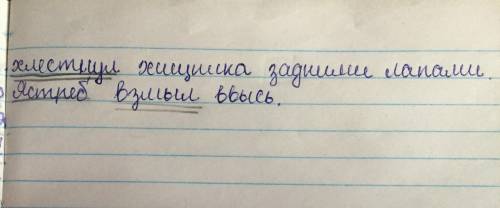 хлестнул хищника задними лапами.
Ястреб взмыл ввысь.